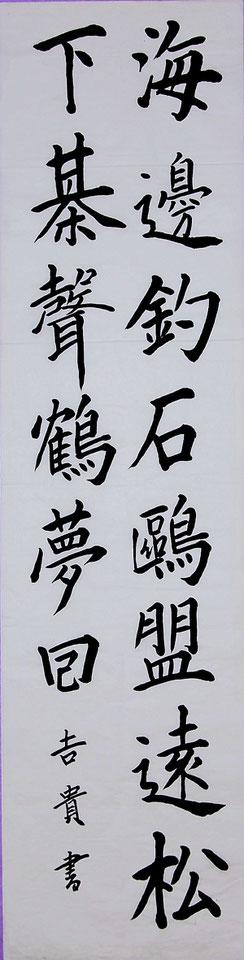 海邊釣石鷗盟遠松
下棊聲鶴夢回
吉貴書